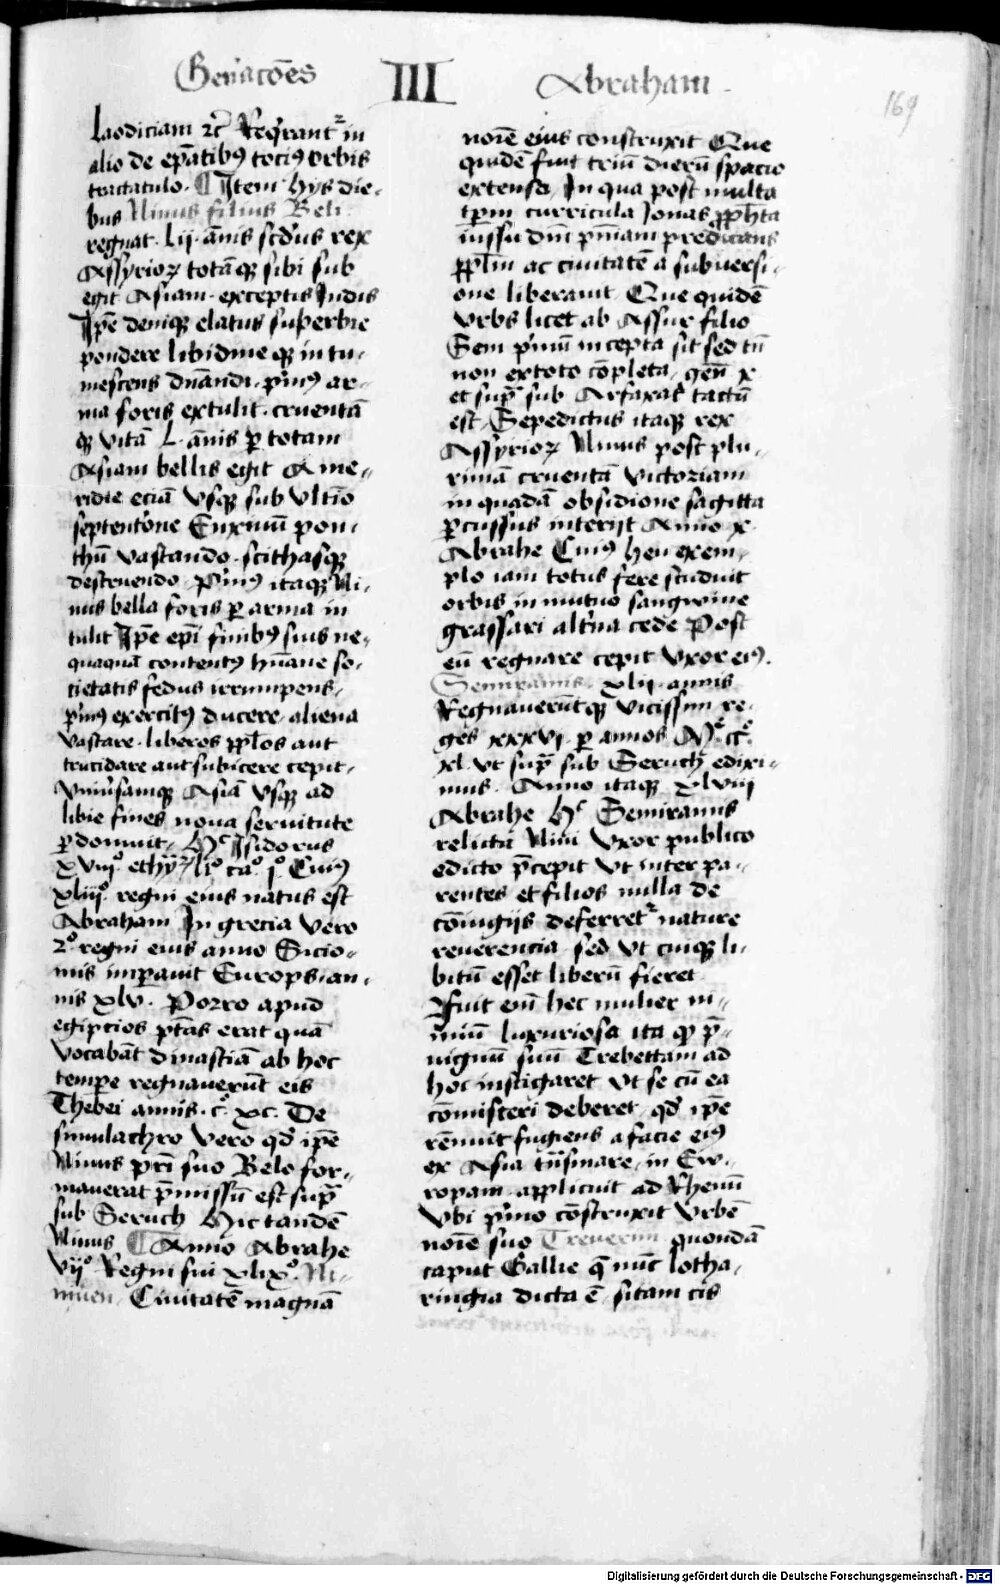 Gen̄acōēs III Abraham
169
Laodiciam ⁊c̄ Req̄rant᷑ in
alio de ep̄atibꝰ tociꝰ orbis
tractatulo. ¶ Item hys die-
bus Ninus filius Beli
regnat. lij. ānis scd̄us rex
Assyrioꝝ totāqꝫ sibi sub
egit Asiam. exceptis Indis
Ip̄e deniqꝫ elatus superbie
pondere libidineqꝫ intu-
mescens dn̄andi. p̄imꝰ ar-
ma foris extulit. cruentā
qꝫ vitā L. ānis ꝑ totam
Asiam bellis egit A me-
ridie eciā vsqꝫ sub vltīo
septent̓one Euxinū pon-
thū vastando. scithasqꝫ
destruendo. P̓imꝰ itaqꝫ Ni-
nus bella foris ꝑ arma in
tulit Ip̄e epī finibꝰ suis ne-
quaquā contentꝰ hūane so-
cietatis fedus irrumpens.
p̓imꝰ exercitꝰ ducere. aliena
vastare. liberos ppl̄os aut
trucidare aut subicere cepit.
Vniūsamqꝫ Asiā vsqꝫ ad
libie fines noua seruitute
ꝑdomuit. Hᶜ Isidorus
xviij°. ethy̓ꝝ li° ca°. j°. Cuiꝰ
xliij°. regni eius natus est
Abraham In grecia vero
2° regni eius anno Sicio-
nis imꝑauit Europs. an-
nis xlv. Porro apud
egiptios p̄tās erat quā
vocabāt dinastiā ab hoc
tempe regnauerūt eis
Thebei annis. c°. xc. De
simulachro vero qd̄ ip̄e
Ninus pr̄i suo Belo for-
mauerat p̄missū est sup̄
sub Seruch Hic tandē
Ninus ¶ Anno Abrahe
vij° Regni sui xlix°. Ni-
niuen. Ciuitatē magnā
noīe eius construxit Que
quidē fuit triū dierū spacio
extensa. In qua post multa
tp̄m curricula Ionas ꝓph̄ta
iussu dn̄i pn̄iam predicans
ppl̄m ac ciuitatē a subuersi-
one liberauit Que quidē
vrbs licet ab Assur filio
Sem p̓mū incepta sit sed tn̄
non ex toto cōpleta. gen̄ x
et sup̄ sub Arfaxat tactū
est. Sepedictus itaqꝫ rex
Assyrioꝝ Ninus post plu-
rimā cruentā victoriam
in quadā obsidione sagitta
ꝑcussus interijt Anno x.
Abrahe Cuiꝰ heu exem-
plo iam totus fere studuit
orbis in mutuo sangwine
grassari alt̓na cede Post
eū regnare cepit vxor eiꝰ.
Semiramis. xlij annis
Regnauerūtqꝫ vicissim re-
ges xxxvj. ꝑ annos M°. cc°.
xl. vt sup̄ sub Seruch edixi-
mus. Anno itaqꝫ xlviij
Abrahe Hᶜ Semiramis
relicta Nini vxor publico
edicto p̄cepit vt inter pa-
rentes et filios nulla de
cōiugijs deferret᷑ nature
reuerencia sed vt cuiqꝫ li-
bitū esset liberū fieret
Fuit em̄ hec mulier ni-
miū luxuriosa ita qꝫ p̄-
uignū suū Trebettam ad
hoc instigaret vt se cū ea
cōmisceri deberet. qd̄ ip̄e
rēnuit fugiens a facie eiꝰ
ex Asia tn̄smare. in Ew-
ropam applicuit ad Rhenū
vbi p̓mo cōstruxit vrbē
noīe suo Treuerim quondā
caput Gallie q̄ nūc lotha-
ringia dicta ē. sitam cis
Digitalisierung gefördert durch die Deutsche Forschungsgemeinschaft - DFG